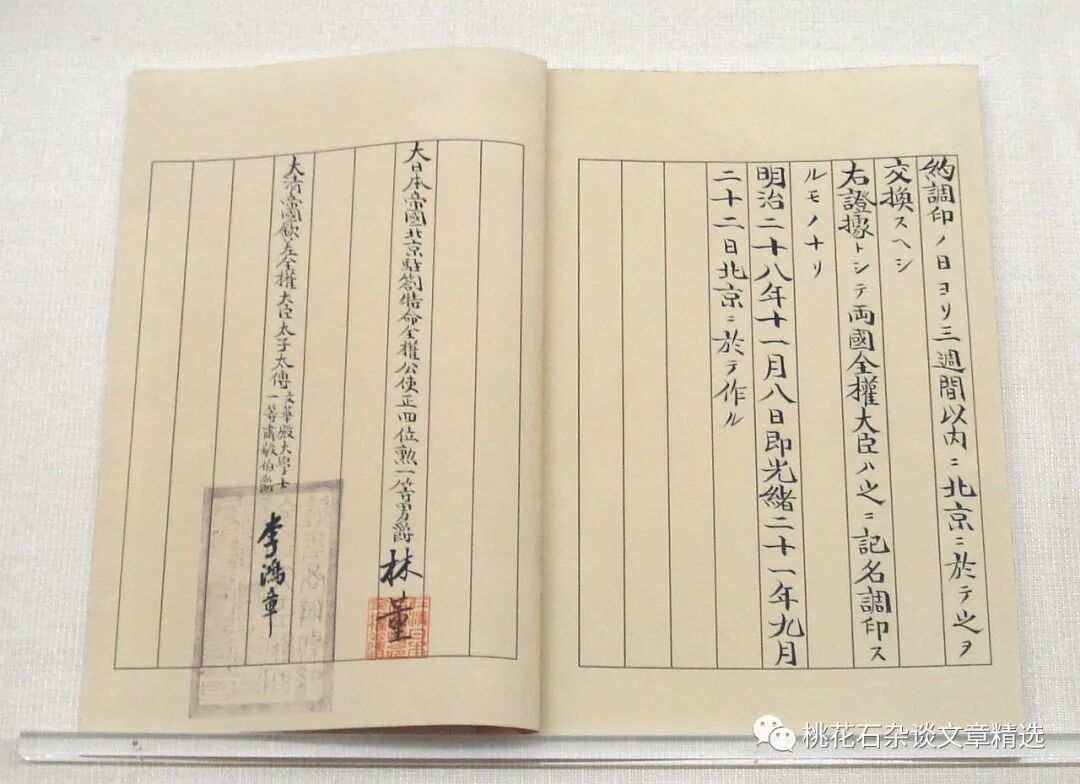 約調印ノ日ヨリ三週間以內ニ北京ニ於テ之ヲ
交換スヘシ
右證據トシテ両國全權大臣ハ之ニ記名調印ス
ルモノナリ
明治二十八年十一月八日即光緒二十一年九月
二十二日北京ニ於テ作ル
大日本帝國北京駐劄特命全權公使正四位勲一等男爵 林董
大清帝國欽差全權大臣太子太傅文華殿大學士
一等肅毅伯爵 李鴻章
桃花石杂谈文章精选